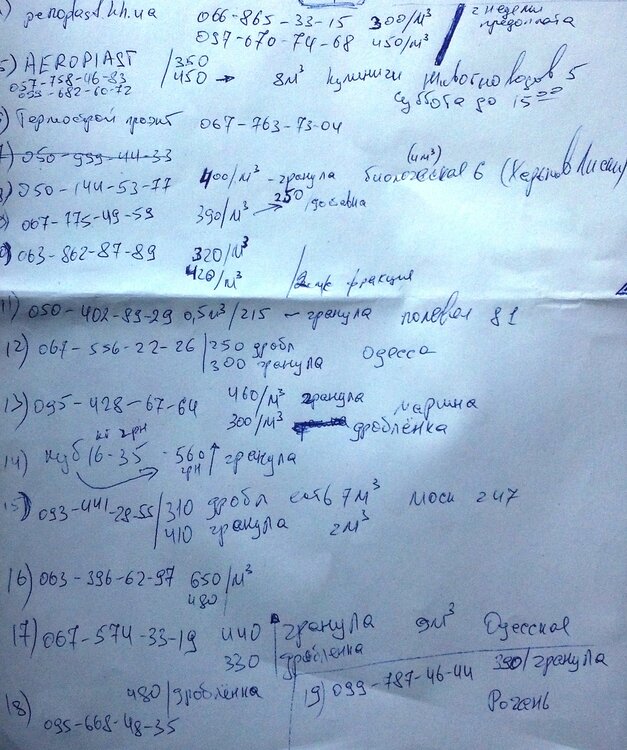 penoplast.kh.ua 066-865-33-15 300/м³ 2 недели
097-670-74-68 450/м³ предоплата
5) AEROPLAST /350
057-758-46-83 450 → 8м³ 5
099-682-60-72 суббота до 15⁰⁰
Термострой проэкт 067-763-73-04
050-999-44-33
050-144-53-77 400/м³ - гранула биологическая 6
067-775-49-59 390/м³ → 250 /доставка
063-862-87-89 320/м³
420/м³ фракция
11) 050-402-89-29 0,5м³/215 - гранула полевая 81
12) 067-556-22-26 | 250 дробл Одесса
300 гранула
13) 095-428-67-64 460/м³ гранула марина
300/м³ дроблёнка
14) куб 16-35 - 560 грн ↑ гранула
15) 093-441-28-55 /310 дробл есть 7м³ моск 247
/410 гранула 2м³
16) 063-396-62-97 650/м³
480/
17) 067-574-33-19 440 | гранула 9м³ Одесская
330 | дроблёнка
18) 480 | дроблёнка
095-668-48-35
19) 099-787-46-44 390/гранула
Рогань